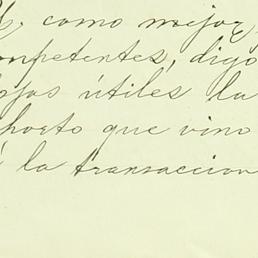 y, como mejor
mpetentes, digo
ojas útiles la
porto que vino
la transaccion